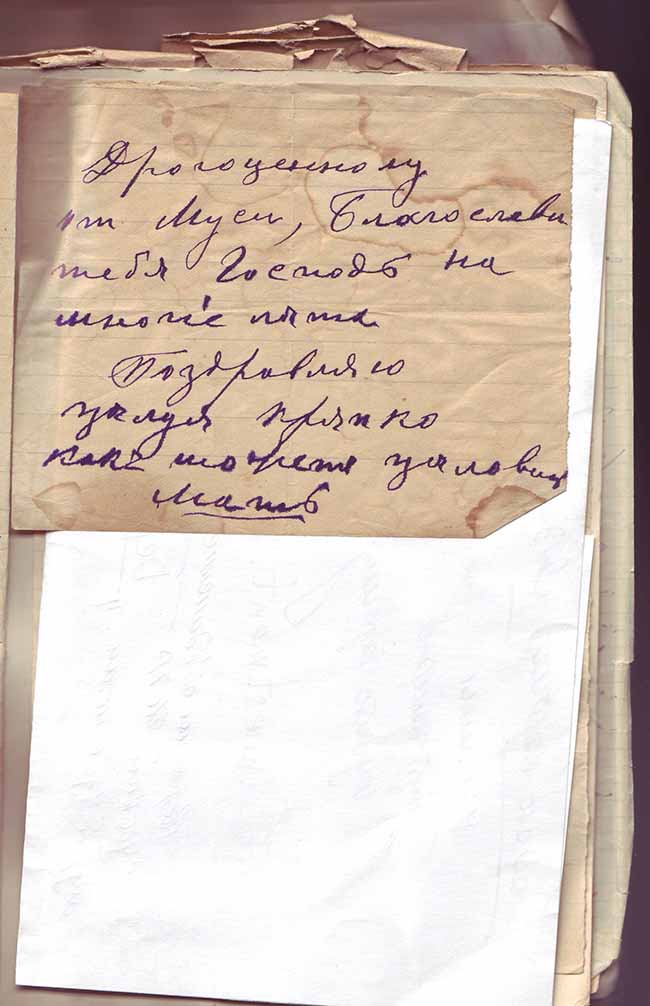 Дрогоценному
от Муси, Благослави
тебя Господь на
многіе лята
Поздровляю
цялуя кряпко
какъ можетя цяловат
мать